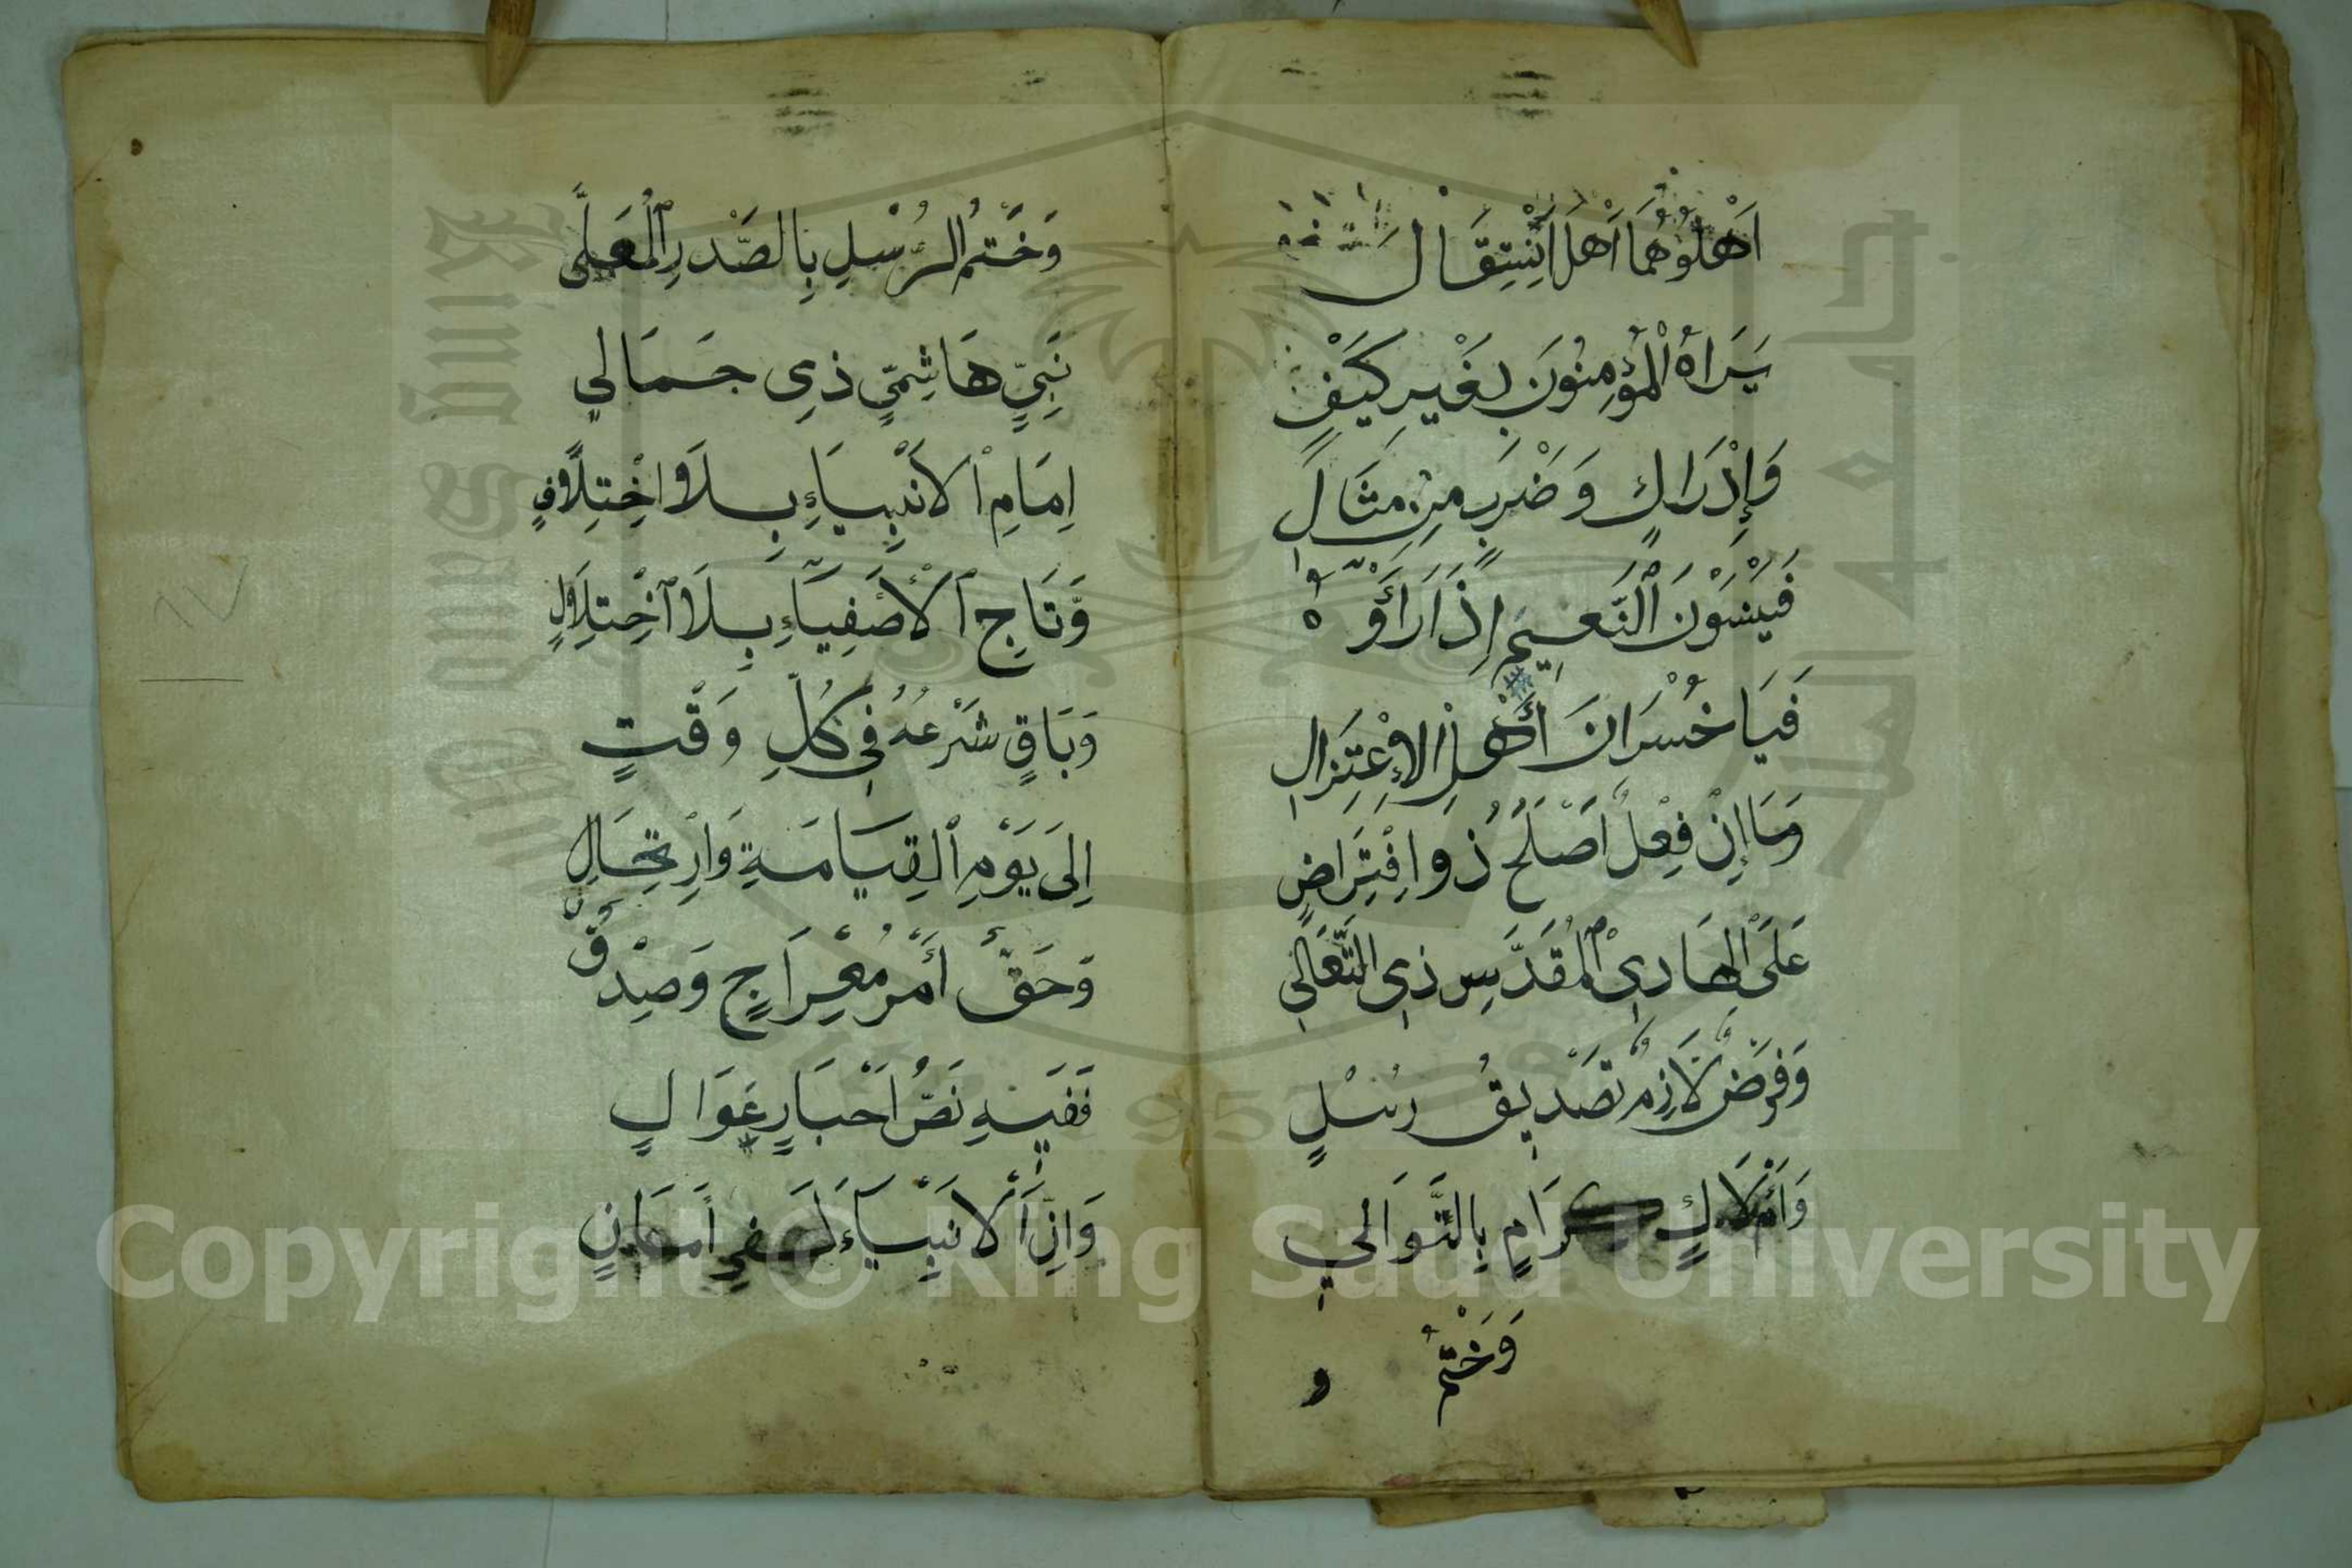 اَهْلُوهُمَا اَهْلَ انْتِقَالِ
يَرَاهُ الْمُؤْمِنُونَ بِغَيْرِ كَيْفٍ
وَإِدْرَاكٍ وَضَرْبٍ مِنْ مِثَالِ
فَيَنْسَوْنَ النَّعِيمَ إِذَا رَأَوْهُ
فَيَا خُسْرَانَ أَهْلِ الْإِعْتِزَالِ
وَمَا إِنْ فِعْلٌ اَصْلَحُ ذُو افْتِرَاضٍ
عَلَى الْهَادِي الْمُقَدَّسِ ذِي التَّعَالِي
وَفَرْضٌ لَازِمٌ تَصْدِيقُ رُسْلٍ
وَأَمْلَاكٍ كِرَامٍ بِالتَّوَالِي
وَخَتْمُ
وَخَتْمُ الرُّسْلِ بِالصَّدْرِ الْمُعَلَّى
نَبِيٍّ هَاشِمِيٍّ ذِي جَمَالِي
اِمَامِ الْاَنْبِيَاءِ بِلَا اخْتِلَافٍ
وَّتَاجِ الْأَصْفِيَاءِ بِلَا اخْتِلَالٍ
وَبَاقٍ شَرْعُهُ فِي كُلِّ وَقْتٍ
اِلَى يَوْمِ الْقِيَامَةِ وَارْتِحَالِ
وَحَقٌّ أَمْرُ مِعْرَاجٍ وَصِدْقٌ
فَفِيهِ نَصُّ اَخْبَارٍ عَوَالٍ
وَاِنَّ الْاَنْبِيَاءَ لَفِي أَمَانٍ
Copyright © King Saud University